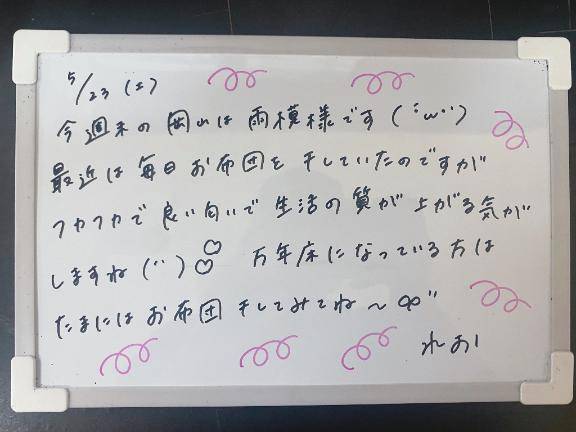 5/23 (土)
今週末の岡山は雨模様です(´ω`)
最近は毎日お布団を干していたのですが
フカフカで良い匂いで生活の質が上がる気が
しますね(¨)♡♡ 万年床になっている方は
たまにはお布団干してみてね〜∞"
れおい